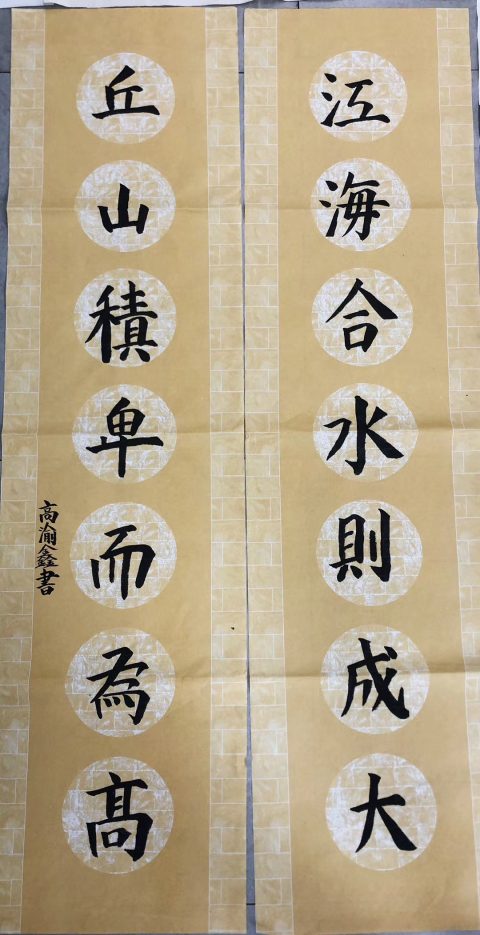 江海合水則成大
丘山積卑而為高
高渝鑫書